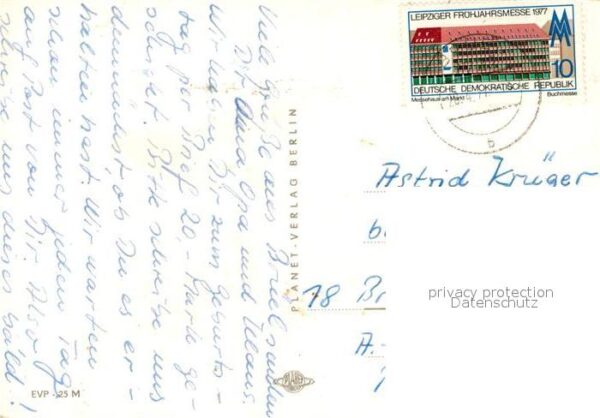 Viele Grüße aus Brüel senden
Dir Oma Opa und Klaus.
Wir haben Dir zum Geburts-
tag pie Brief 20,- Mark ge-
schickt. Bitte schreibe uns
demnächst, ob Du es er-
halten hast. Wir warten
schon immer jeden Tag
auf Post von Dir. Also
schreibe uns dieses bald!
EVP - 25 M
PLANET-VERLAG BERLIN
PLANET
LEIPZIGER FRÜHJAHRSMESSE 1977
MM
10
DEUTSCHE DEMOKRATISCHE REPUBLIK
Messehaus am Markt
Buchmesse
b
Astrid Krüger
b
18 Br
A.-
privacy protection
Datenschutz